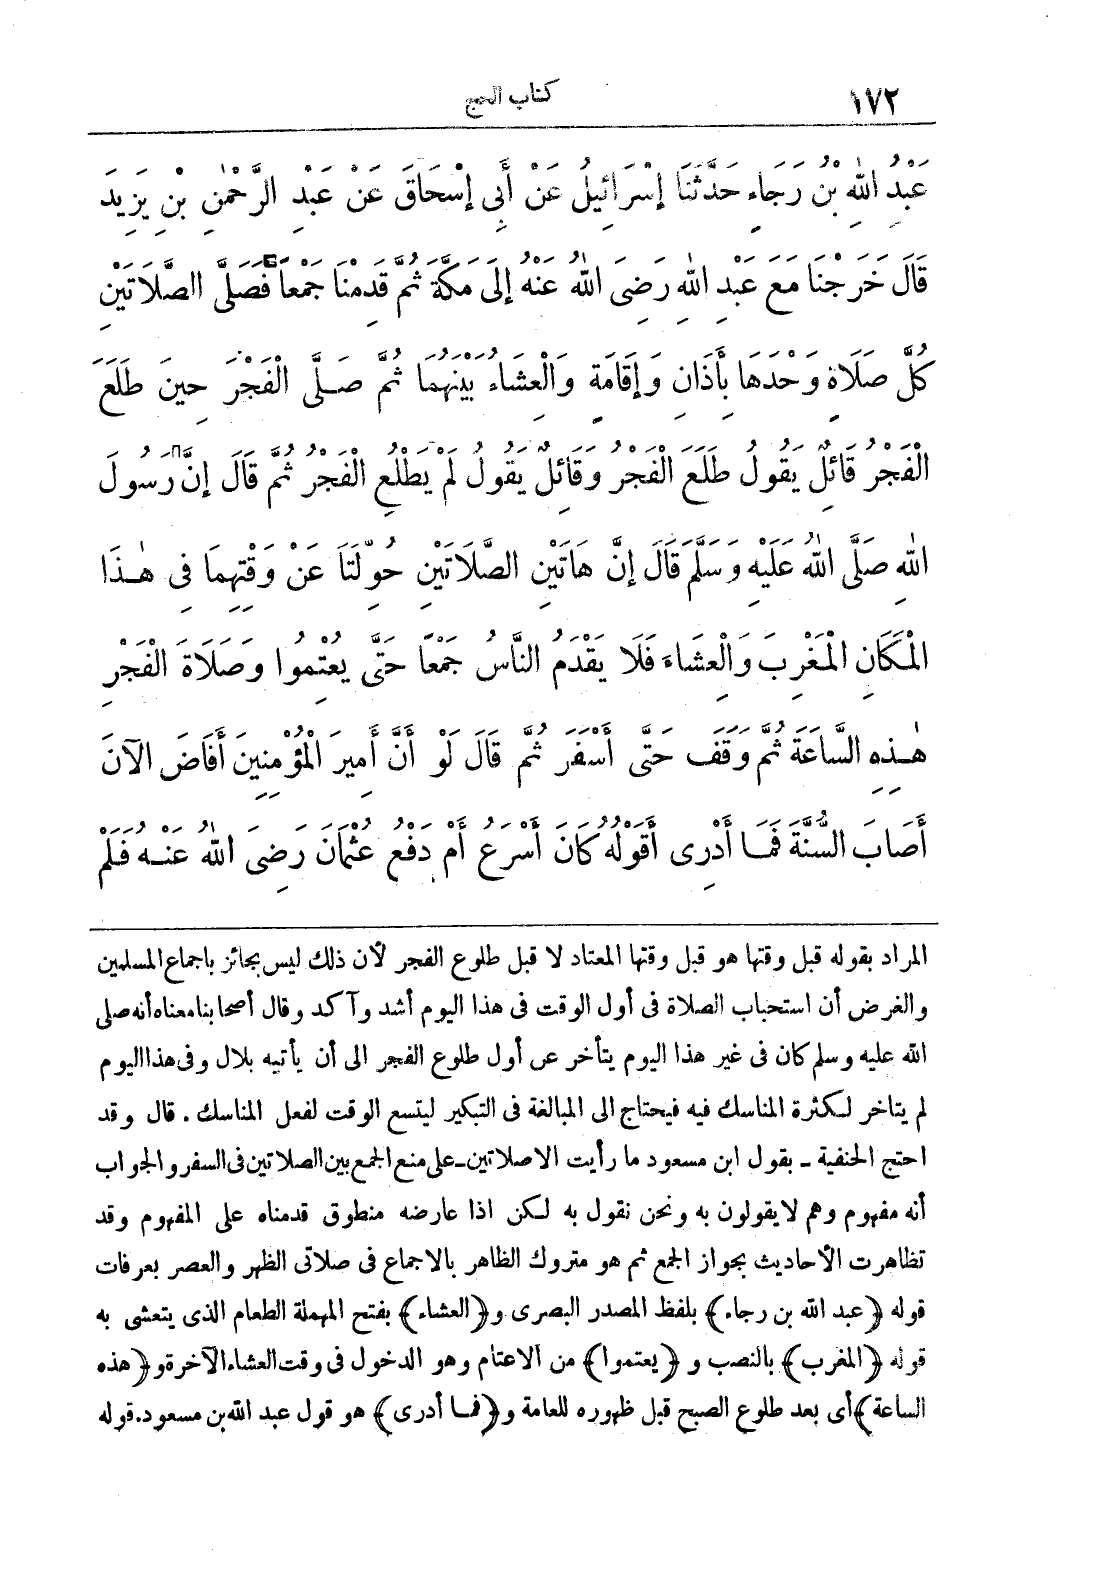 ١٧٢
كتاب الحج
عَبْدُ اللهِ بْنُ رَجَاءٍ حَدَّثَنَا إِسْرَائِيلُ عَنْ أَبِي إِسْحَاقَ عَنْ عَبْدِ الرَّحْمٰنِ بْنِ يَزِيدَ
قَالَ خَرَجْنَا مَعَ عَبْدِ اللهِ رَضِىَ اللهُ عَنْهُ إِلَى مَكَّةَ ثُمَّ قَدِمْنَا جَمْعاً فَصَلَّى الصَّلَاتَيْنِ
كُلَّ صَلَاةٍ وَحْدَهَا بِأَذَانٍ وَإِقَامَةٍ وَالْعِشَاءُ بَيْنَهُمَا ثُمَّ صَلَّى الْفَجْرَ حِينَ طَلَعَ
الْفَجْرُ قَائِلٌ يَقُولُ طَلَعَ الْفَجْرُ وَقَائِلٌ يَقُولُ لَمْ يَطْلُعِ الْفَجْرُ ثُمَّ قَالَ إِنَّ رَسُولَ
اللهِ صَلَّى اللهُ عَلَيْهِ وَسَلَّمَ قَالَ إِنَّ هَاتَيْنِ الصَّلَاتَيْنِ حُوِّلَتَا عَنْ وَقْتِهِمَا فِى هٰذَا
الْمَكَانِ الْمَغْرِبَ وَالْعِشَاءَ فَلَا يَقْدَمُ النَّاسُ جَمْعًا حَتَّى يُعْتِمُوا وَصَلَاةَ الْفَجْرِ
هٰذِهِ السَّاعَةَ ثُمَّ وَقَفَ حَتَّى أَسْفَرَ ثُمَّ قَالَ لَوْ أَنَّ أَمِيرَ الْمُؤْمِنِينَ أَفَاضَ الْآنَ
أَصَابَ السُّنَّةَ فَمَا أَدْرِى أَقَوْلُهُ كَانَ أَسْرَعَ أَمْ دَفْعُ عُثْمَانَ رَضِىَ اللهُ عَنْهُ فَلَمْ
المراد بقوله قبل وقتها هو قبل وقتها المعتاد لا قبل طلوع الفجر لأن ذلك ليس بجائز باجماع المسلمين
والغرض أن استحباب الصلاة فى أول الوقت فى هذا اليوم أشد وآكد وقال أصحابنا معناه أنه صلى
الله عليه وسلم كان فى غير هذا اليوم يتأخر عن أول طلوع الفجر الى أن يأتيه بلال وفى هذا اليوم
لم يتاخر لكثرة المناسك فيه فيحتاج الى المبالغة فى التبكير ليتسع الوقت لفعل المناسك . قال وقد
احتج الحنفية ـ بقول ابن مسعود ما رأيت الاصلاتين ـ على منع الجمع بين الصلاتين فى السفر والجواب
أنه مفهوم وهم لا يقولون به ونحن نقول به لكن اذا عارضه منطوق قدمناه على المفهوم وقد
تظاهرت الأحاديث بجواز الجمع ثم هو متروك الظاهر بالاجماع فى صلاتى الظهر والعصر بعرفات
قوله ﴿عبد الله بن رجاء﴾ بلفظ المصدر البصرى و ﴿العشاء﴾ بفتح المهملة الطعام الذى يتعشى به
قوله ﴿المغرب﴾ بالنصب و ﴿يعتموا﴾ من الاعتام وهو الدخول فى وقت العشاء الآخرة و ﴿هذه
الساعة﴾ أى بعد طلوع الصبح قبل ظهوره للعامة و ﴿فما أدرى﴾ هو قول عبد الله بن مسعود. قوله